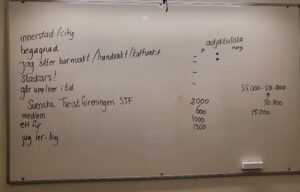 innerstad/city
begagnad
jag sitter barnvakt/hundvakt/kattvakt
stackars!
går upp/ner i tid
Svenska Turistföreningen STF
medlem
ett får
jag ser tag
adjektivlista
2000
600
1000
1500
35.000-50.000
50.000
15.000